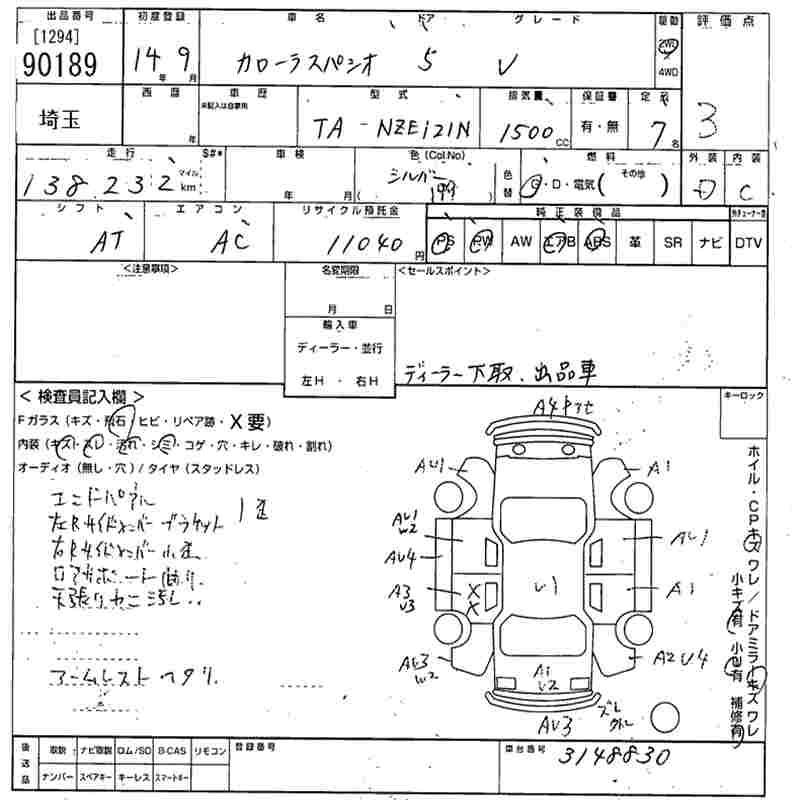 出品番号 初度登録 車名 ドア グレード 駆動 評価点
[1294]
90189 14年 9月 カローラスパシオ 5 V 2WD 4WD 3
埼玉 西暦 年 車歴 未記入は自家用 型式 排気量 保証書 定員
TA-NZE121N 1500cc 有・無 7名
走行 S#* 車検 色(Col.No) 燃料 外装 内装
138,232 マイル km 年 月 シルバー ( 199 ) 色替 G・D・電気 (その他) D C
シフト エアコン リサイクル預託金 純正装備品
AT AC 11040円 PS PW AW エアB ABS 革 SR ナビ DTV
<注意事項> 名変期限 <セールスポイント>
月 日
輸入車
ディーラー・並行
左H ・ 右H
ディーラー下取、出品車
キーロック
<検査員記入欄>
Fガラス(キズ・飛石・ヒビ・リペア跡・X要)
内装(キズ・スレ・汚れ・シミ・コゲ・穴・キレ・破れ・割れ)
オーディオ(無し・穴)/タイヤ(スタッドレス)
エンドパネル
左Rサイドメンバーブラケット
右Rサイドメンバー
天張り
アームレスト ヘタリ
A4
AU1 A1
AU1 W2 AU1
AU4
A3 U3 X X U1 A1
AU3 W2 A2 U4
A1 U2
AU3 ズレ
ホイル・CPキズ ワレ/ドアミラーキズ ワレ
小キズ有 小U有 補修有
後送品 取説 ナビ取説 ロム/SD B-CAS リモコン 登録番号 車台番号
ナンバー スペアキー キーレス スマートキー 3148830